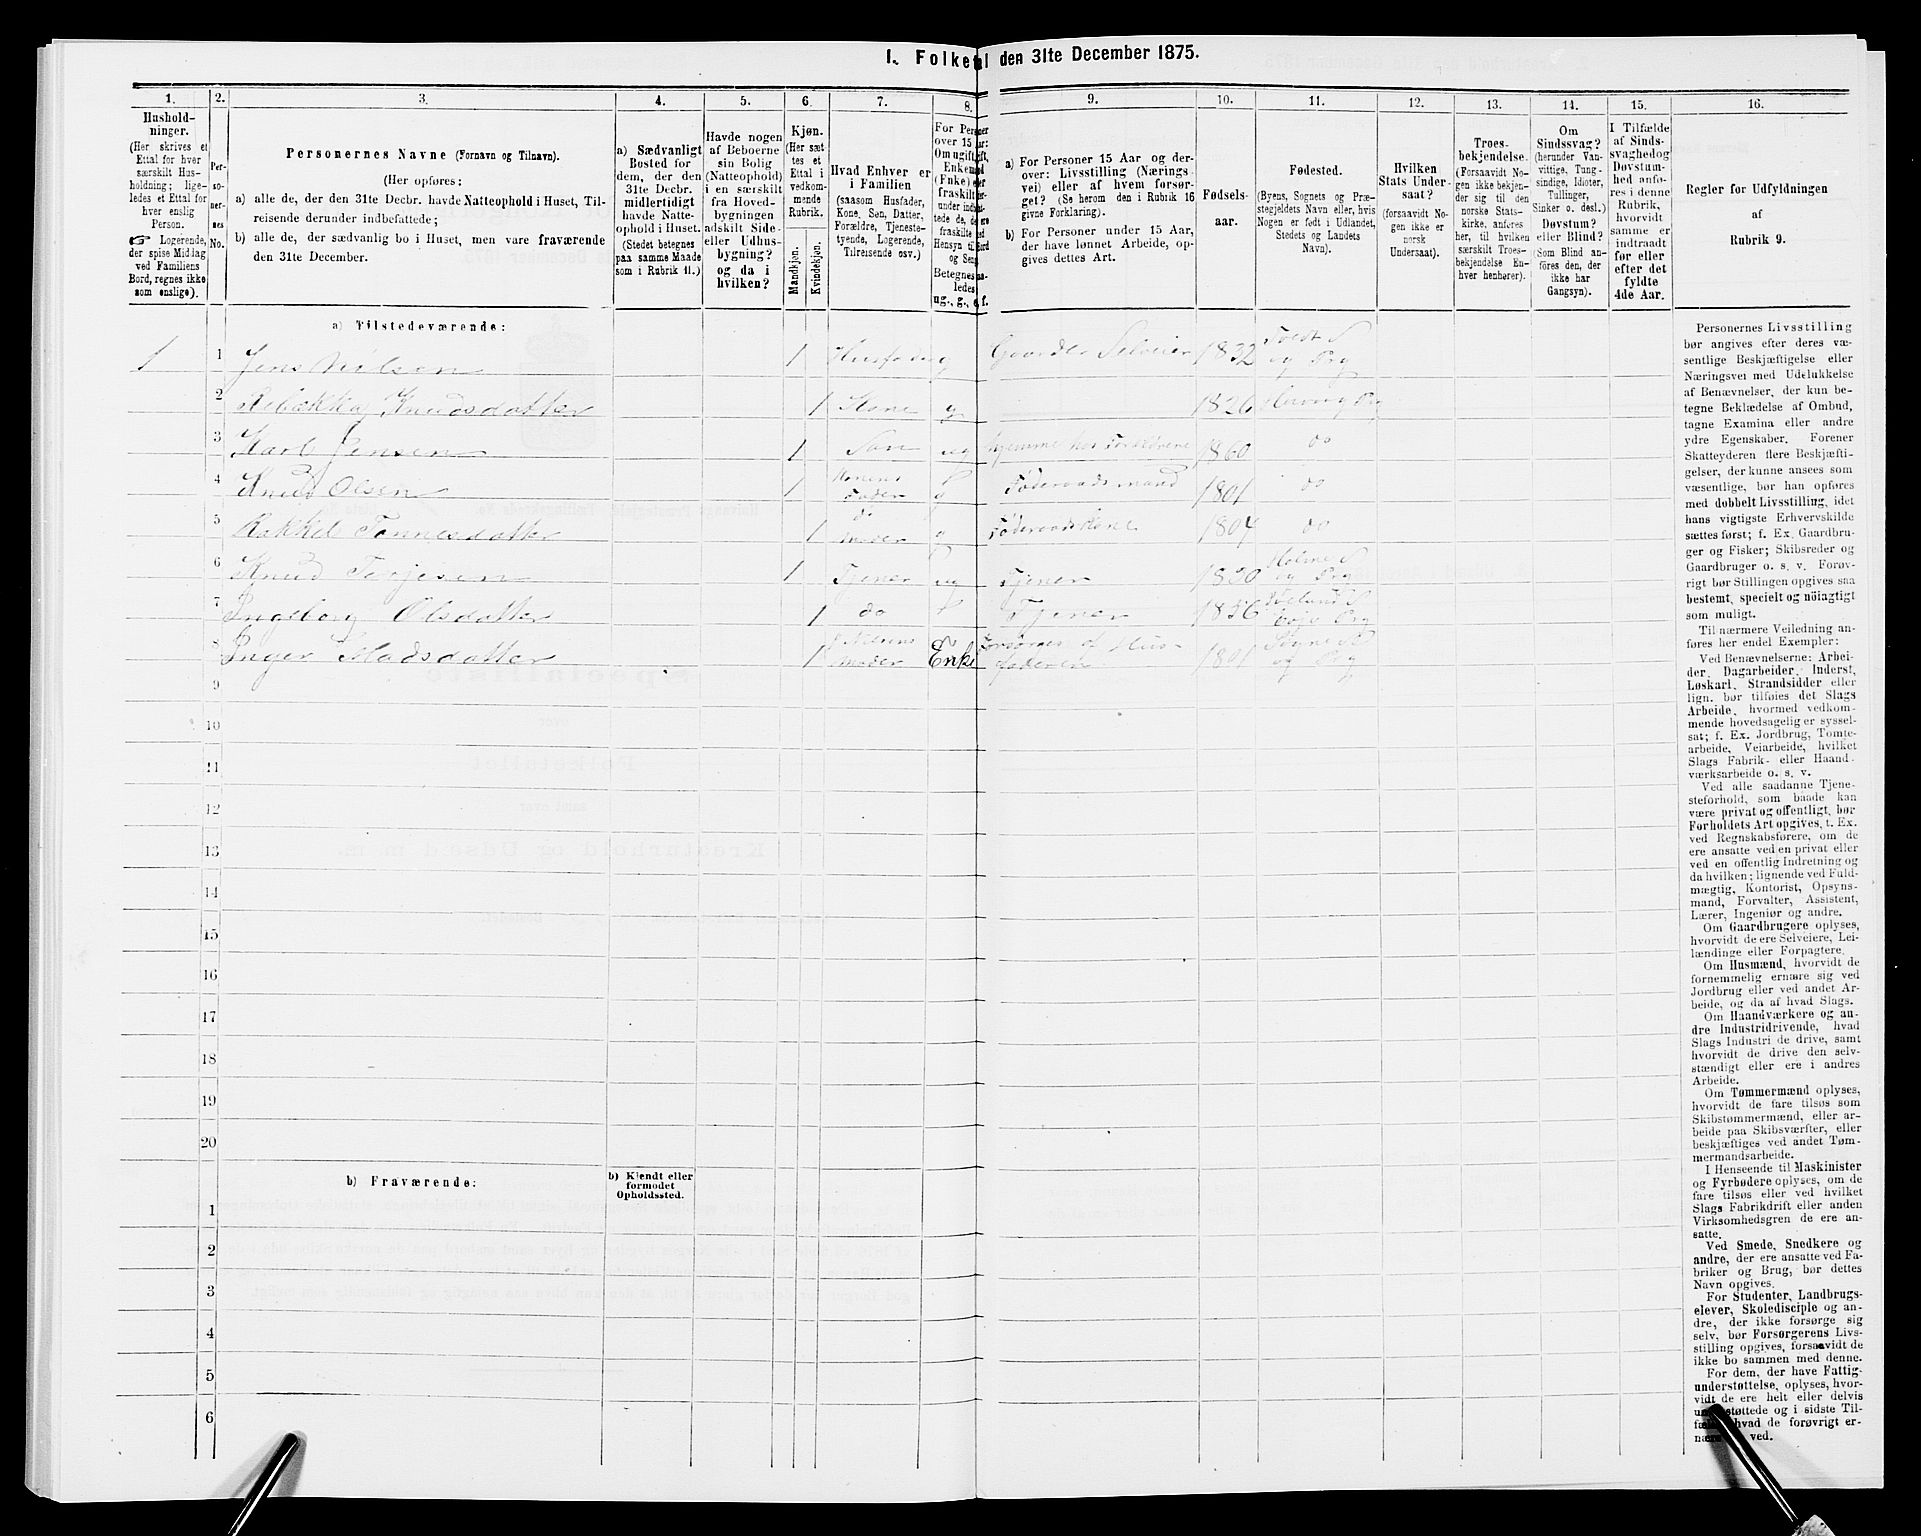 I. Folketal den 31te December 1875.
1.
2.
3.
4.
5.
6.
7.
8.
9.
10.
11.
12.
13.
14.
15.
16.
Hushold-
ninger.
(Her skrives et
Ettal for hver
særskilt Hus-
holdning; lige-
ledes et Ettal for
hver enslig
Person.
☞ Logerende,
der spise Middag
ved Familiens
Bord, regnes ikke
som enslige).
Per-
so-
ner-
nes
No.
Personernes Navne (Fornavn og Tilnavn).
(Her opføres:
a) alle de, der den 31te Decbr. havde Natteophold i Huset, Til-
reisende derunder indbefattede;
b) alle de, der sædvanlig bo i Huset, men vare fraværende
den 31te December.
a) Sædvanligt
Bosted for
dem, der den
31te Decbr.
midlertidigt
havde Natte-
ophold i Huset.
(Stedet betegnes
paa samme Maade
som i Rubrik 11.)
Havde nogen
af Beboerne
sin Bolig
(Natteophold)
i en særskilt
fra Hoved-
bygningen
adskilt Side-
eller Udhus-
bygning?
og da i
hvilken?
Kjøn.
(Her sæt-
tes et
Ettal i
vedkom-
mende
Rubrik.
Mandkjøn.
Kvindekjøn.
Hvad Enhver er
i Familien
(saasom Husfader,
Kone, Søn, Datter,
Forældre, Tjeneste-
tyende, Logerende,
Tilreisende osv.)
For Personer
over 15 Aar:
Om ugift,
Enke
(Enke)
fraskilt
Betegnes
ledes
ug., g., e. f.
a) For Personer 15 Aar og der-
over: Livsstilling (Nærings-
vei) eller af hvem forsør-
get? (Se herom den i Rubrik 16
givne Forklaring.)
b) For Personer under 15 Aar,
der have lønnet Arbeide, op-
gives dettes Art.
Fødsels-
aar.
Fødested.
(Byens, Sognets og Præ-
stegjeldets Navn eller, hvis
Nogen er født i Udlandet,
Stedets og Landets
Navn).
Hvilken
Stats Under-
saat?
(forsaavidt No-
gen ikke er
norsk
Undersaat).
Troes-
bekjendelse.
(Forsaavidt No-
gen ikke bekjen-
der sig til den
norske Stats-
kirke, anføres
her, til hvilken
særskilt Troes-
bekjendelse En-
hver henhører).
Om
Sindssvag?
(herunder Van-
vittige, Tung-
sindige, Idioter,
Tullinger,
Sinker o. desl.)
Døvstum?
eller Blind?
(Som Blind an-
føres den, der
ikke har
Gangsyn).
I Tilfælde
af Sinds-
svaghed og
Døvstum-
hed anfø-
res i denne
Rubrik,
hvorvidt
samme er
indtraadt
før eller
efter det
fyldte
4de Aar.
Regler for Udfyldningen
af
Rubrik 9.
a) Tilstedeværende:
1 1 Jens Nilsen 1 Husfader g Gaardbr Selveier 1832 og Prg
2 Rebækka Knudsdatter 1 Kone g 1826
3 Karl Jensen 1 Søn ug hjemme hos Forældrene 1860 do
4 Knud Olsen 1 Konens Fader g Føderaadsmand 1801 do
5 Rakkel Tønnesdatter 1 do Moder g Føderaadskone 1804 do
6 Knud Terjesen 1 Tjener ug Tjener Holme S og Prg
7 Ingeborg Olsdatter 1 do Tjener
8 Inger Madsdatter 1 J Nilsens Moder Enke Forsørges af Hus-
faderen 1801 Søgne S og Prg
9
10
11
12
13
14
15
16
17
18
19
20
b) Fraværende:
b) Kjendt eller
formodet
Opholdssted.
1
2
3
4
5
6
Personernes Livsstilling
bør angives efter deres væ-
sentlige Beskjæftigelse eller
Næringsvei med Udelukkelse
af Benævnelser, der kun be-
tegne Beklædelse af Ombud,
tagne Examina eller andre
ydre Egenskaber. Forener
Skatteyderen flere Beskjæfti-
gelser, der kunne ansees som
væsentlige, bør han opføres
med dobbelt Livsstilling, idet
hans vigtigste Erhvervskilde
sættes først; f. Ex. Gaardbru-
ger og Fisker; Skibsreder og
Gaardbruger o. s. v. Forøv-
rigt bør Stillingen opgives saa
bestemt, specielt og nöiagtigt
som muligt.
Til nærmere Veiledning an-
føres her endel Exempler:
Ved Benævnelserne: Arbei-
der, Dagarbeider, Inderst,
Løskarl, Strandsidder eller
lign. bør tilføies det Slags
Arbeide, hvormed vedkom-
mende hovedsagelig er syssel-
sat; f. Ex. Jordbrug, Tomte-
arbeide, Veiarbeide, hvilket
Slags Fabrik- eller Haand-
værksarbeide o. s. v.
Ved alle saadanne Tjene-
steforhold, som baade kan
være privat og offentligt, bør
Forholdets Art opgives, t. Ex.
ved Regnskabsførere, om de
ere ansatte ved en privat eller
ved en offentlig Indretning og
da hvilken; lignende ved Fuld-
mægtig, Kontorist, Opsyns-
mand, Forvalter, Assistent,
Lærer, Ingeniør og andre.
Om Gaardbrugere oplyses,
hvorvidt de ere Selveiere, Lei-
lændinge eller Forpagtere.
Om Husmænd, hvorvidt de
fornemmelig ernære sig ved
Jordbrug eller ved andet Ar-
beide, og da af hvad Slags.
Om Haandværkere og an-
dre Industridrivende, hvad
Slags Industri de drive, samt
hvorvidt de drive den selv-
stændigt eller ere i andres
Arbeide.
Om Tømmermænd oplyses,
hvorvidt de fare tilsøs som
Skibstømmermænd, eller ar-
beide paa Skibsværfter, eller
beskjæftiges ved andet Tøm-
mermandsarbeide.
I Henseende til Maskinister
og Fyrbødere oplyses, om de
fare tilsøs eller ved hvilket
Slags Fabrikdrift eller anden
Virksomhedsgren de ere an-
satte.
Ved Smede, Snedkere og
andre, der ere ansatte ved Fa-
briker og Brug, bør dettes
Navn opgives.
For Studenter, Landbrugs-
elever, Skoledisciple og an-
dre, der ikke forsørge sig
selv, bør Forsørgerens Livs-
stilling opgives, forsaavidt de
ikke bo sammen med denne.
For dem, der have Fattig-
understøttelse, oplyses, hvor-
vidt de ere helt eller delvis
understøttede og i sidste Til-
fælde hvad de forøvrigt er-
nære sig ved.